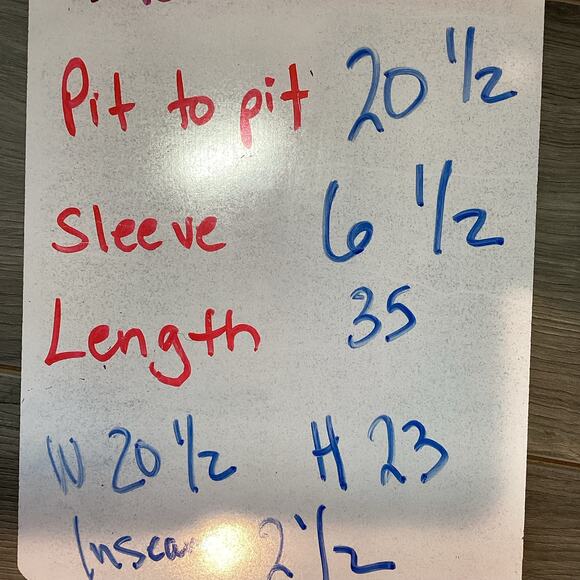 Pit to pit 20 1/2
Sleeve 6 1/2
Length 35
W 20 1/2 H 23
2 1/2